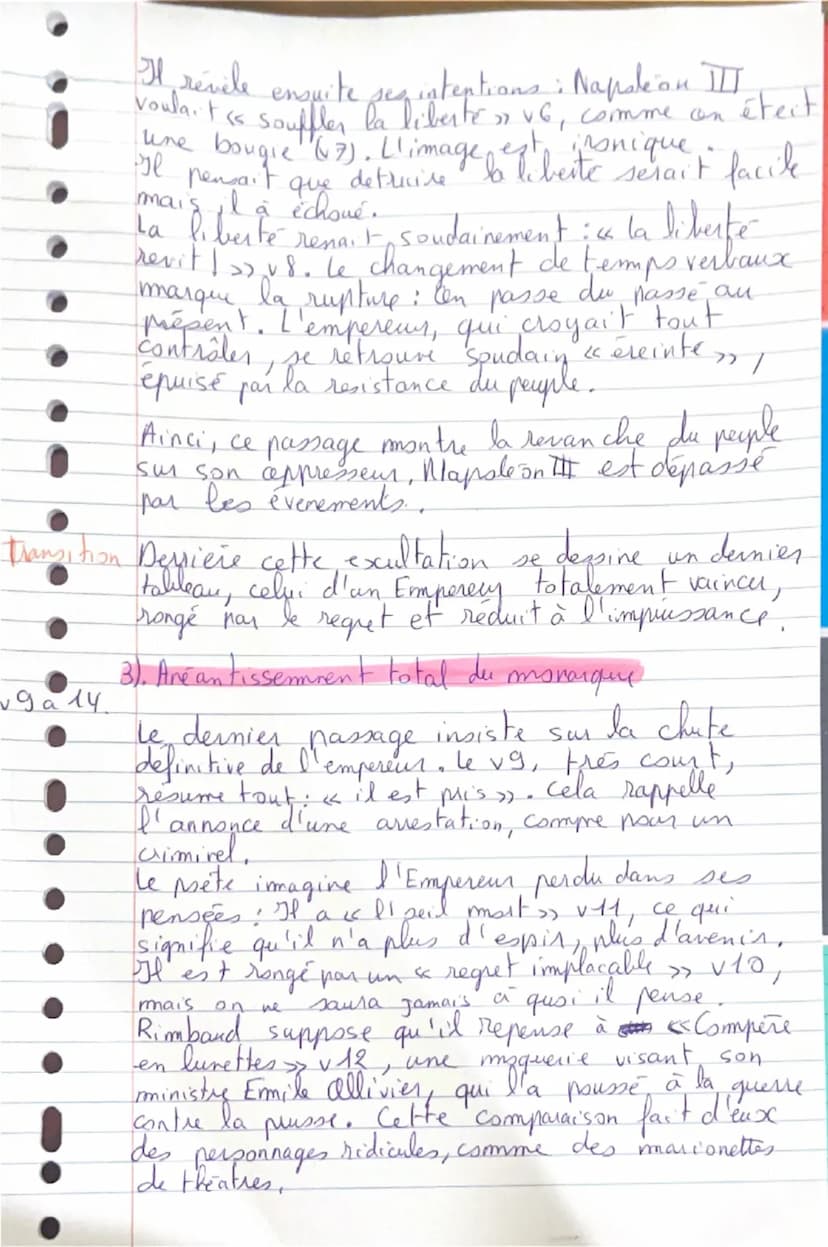 Il révèle ensuite ses intentions : Napoléon III
voulait « souffler la liberté » v6, comme on éteit
une bougie (v7). L'image est ironique.
Il pensait que detruire la liberté serait facile
mais il à échoué.
La liberté renait soudainement : « la liberté
revit ! » v8. Le changement de temps verbaux
marque la rupture : On passe du passé au
présent. L'empereur, qui croyait tout
contrôler, se retrouve soudain « éreinte »,
épuisé par la resistance du peuple.
Ainci, ce passage montre la revanche du peuple
sur son oppresseur, Napoléon III est dépassé
par les évenements.
Transition Derrière cette exultation se dessine un dernier
tableau, celui d'un Empereur totalement vaincu,
rongé par le regret et réduit à l'impuissance.
3). Anéantissement total du monarque
v9 à 14.
Le dernier passage insiste sur la chute
définitive de l'empereur. Le v9, trés court,
résume tout : « il est pris ». Cela rappelle
l'annonce d'une arrestation, comme pour un
criminel.
Le poète imagine l'Empereur perdu dans ses
pensées : Il a « l'oeil mort » v11, ce qui
signifie qu'il n'a plus d'espir, plus d'avenir.
Il est rongé par un « regret implacable » v10,
mais on ne saura jamais à quoi il pense.
Rimbaud suppose qu'il repense à « Compère
en lunettes » v12, une moquerie visant son
ministre Emile Ollivier, qui l'a poussé à la guerre
contre la prusse. Cette comparaison fait d'eux
des personnages ridicules, comme des marionettes
de théatres.